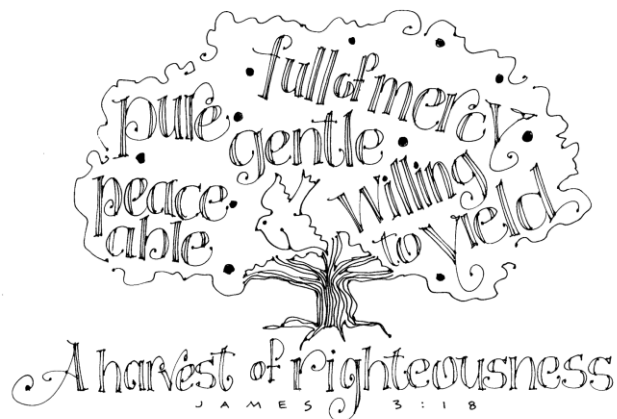 full of mercy
pure
gentle
peace
able
willing
to yield
A harvest of righteousness
JAMES 3:18